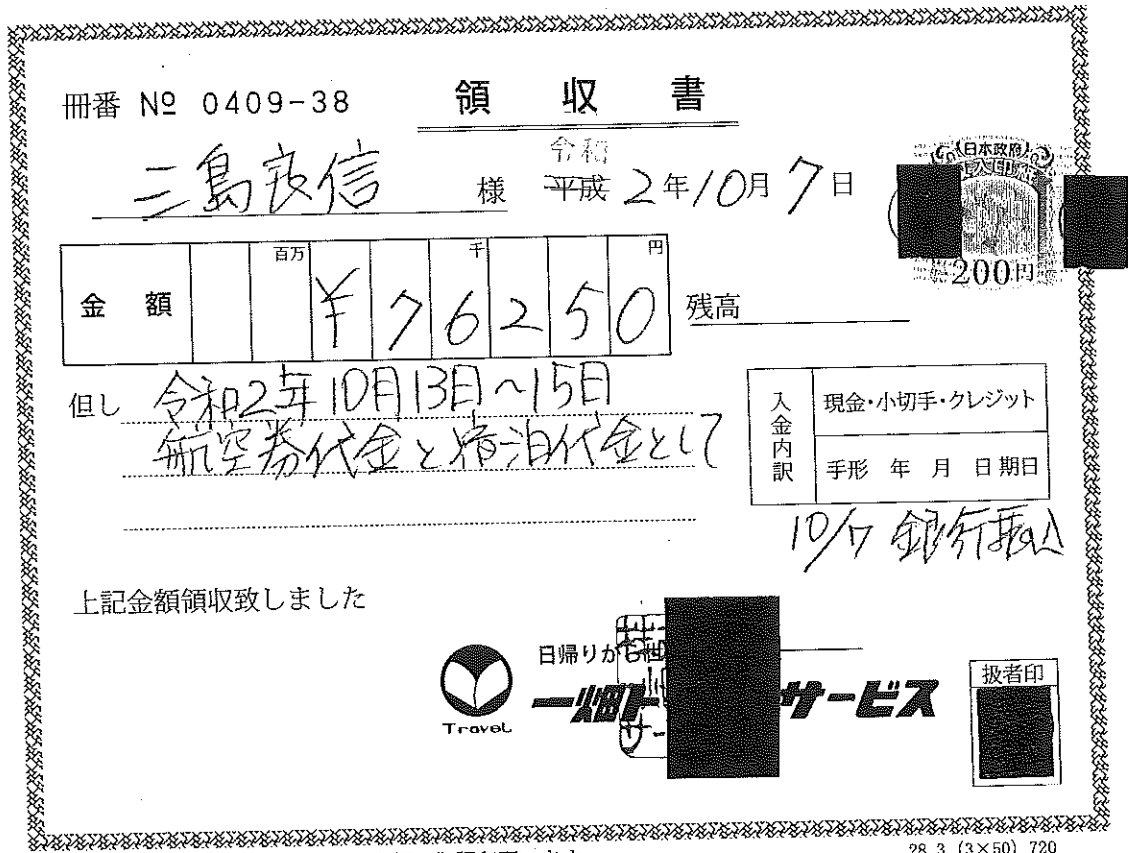 冊番 № 0409-38
領収書
三島良信 様
令和
平成 2年10月7日
日本政府
200円
百万 千 円
金額 ¥76250
残高
但し 令和2年10月13日~15日
航空券代金と宿泊代金として
入金内訳
現金・小切手・クレジット
手形 年 月 日期日
10/7 銀行振込
上記金額領収致しました
日帰りから
Travel
一畑ト サービス
扱者印
28.3 (3×50) 720